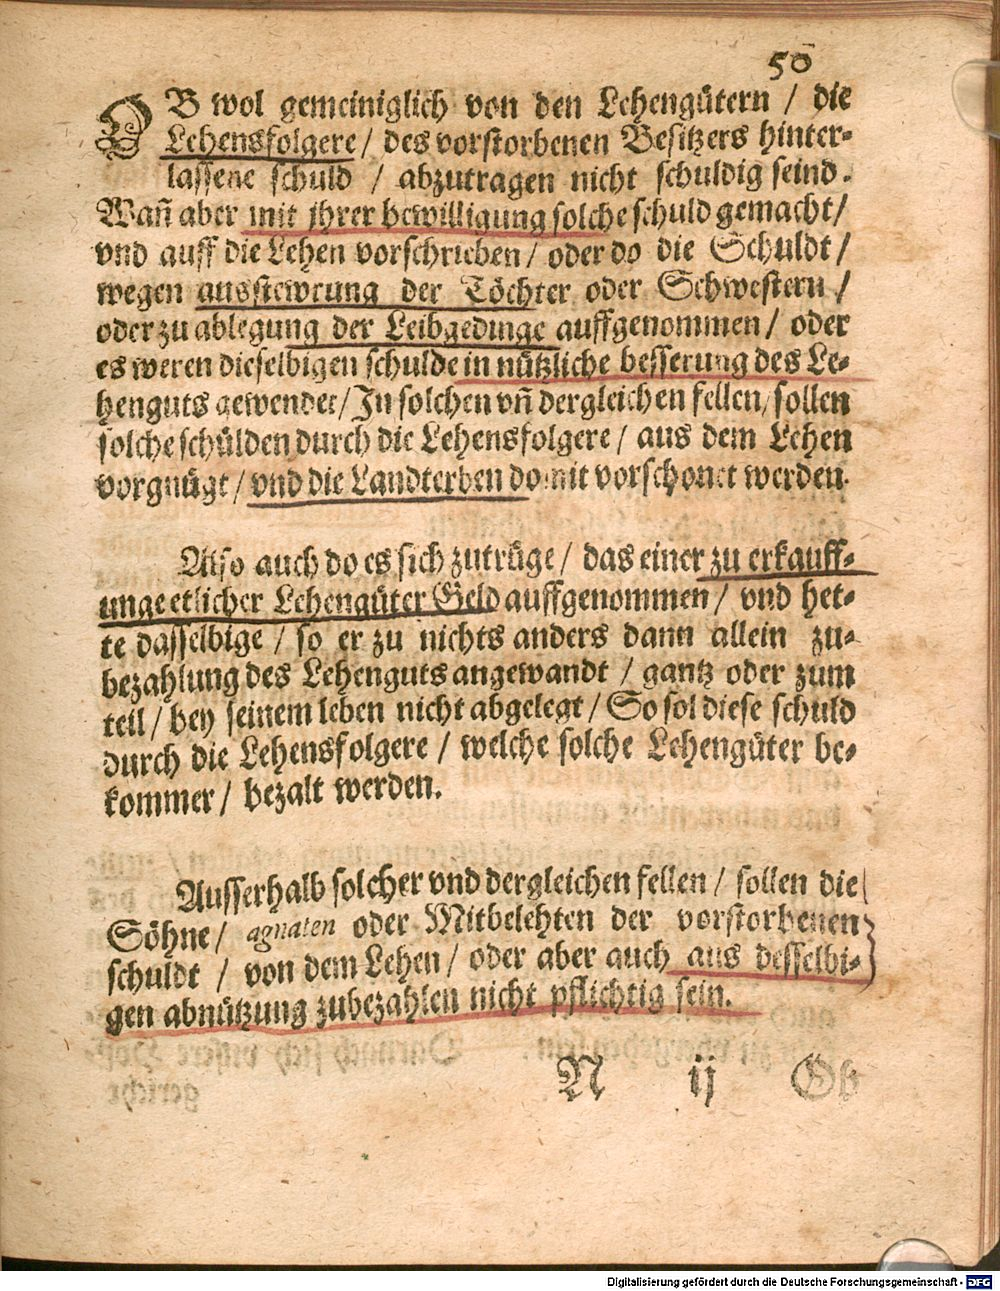 50
OB wol gemeiniglich von den Lehengütern / die
Lehensfolgere / des vorstorbenen Besitzers hinter-
lassene schuld / abzutragen nicht schuldig seind.
Wañ aber mit jhrer bewilligung solche schuld gemacht /
vnd auff die Lehen vorschrieben / oder do die Schuldt /
wegen aussstewrung der Töchter oder Schwestern /
oder zu ablegung der Leibgedinge auffgenommen / oder
es weren dieselbigen schulde in nützliche besserung des Le-
henguts gewendet / In solchen vñ dergleichen fellen / sollen
solche schülden durch die Lehensfolgere / aus dem Lehen
vorgnügt / vnd die Landterben domit vorschonet werden.
Also auch do es sich zutrüge / das einer zu erkauff-
unge etlicher Lehengüter Geld auffgenommen / vnd het-
te dasselbige / so er zu nichts anders dann allein zu-
bezahlung des Lehenguts angewandt / gantz oder zum
teil / bey seinem leben nicht abgelegt / So sol diese schuld
durch die Lehensfolgere / welche solche Lehengüter be-
kommer / bezalt werden.
Ausserhalb solcher vnd dergleichen fellen / sollen die
Söhne / agnaten oder Mitbelehten der vorstorbenen
schuldt / von dem Lehen / oder aber auch aus desselbi-
gen abnützung zubezahlen nicht pflichtig sein.
N ij Ob
Digitalisierung gefördert durch die Deutsche Forschungsgemeinschaft - DFG